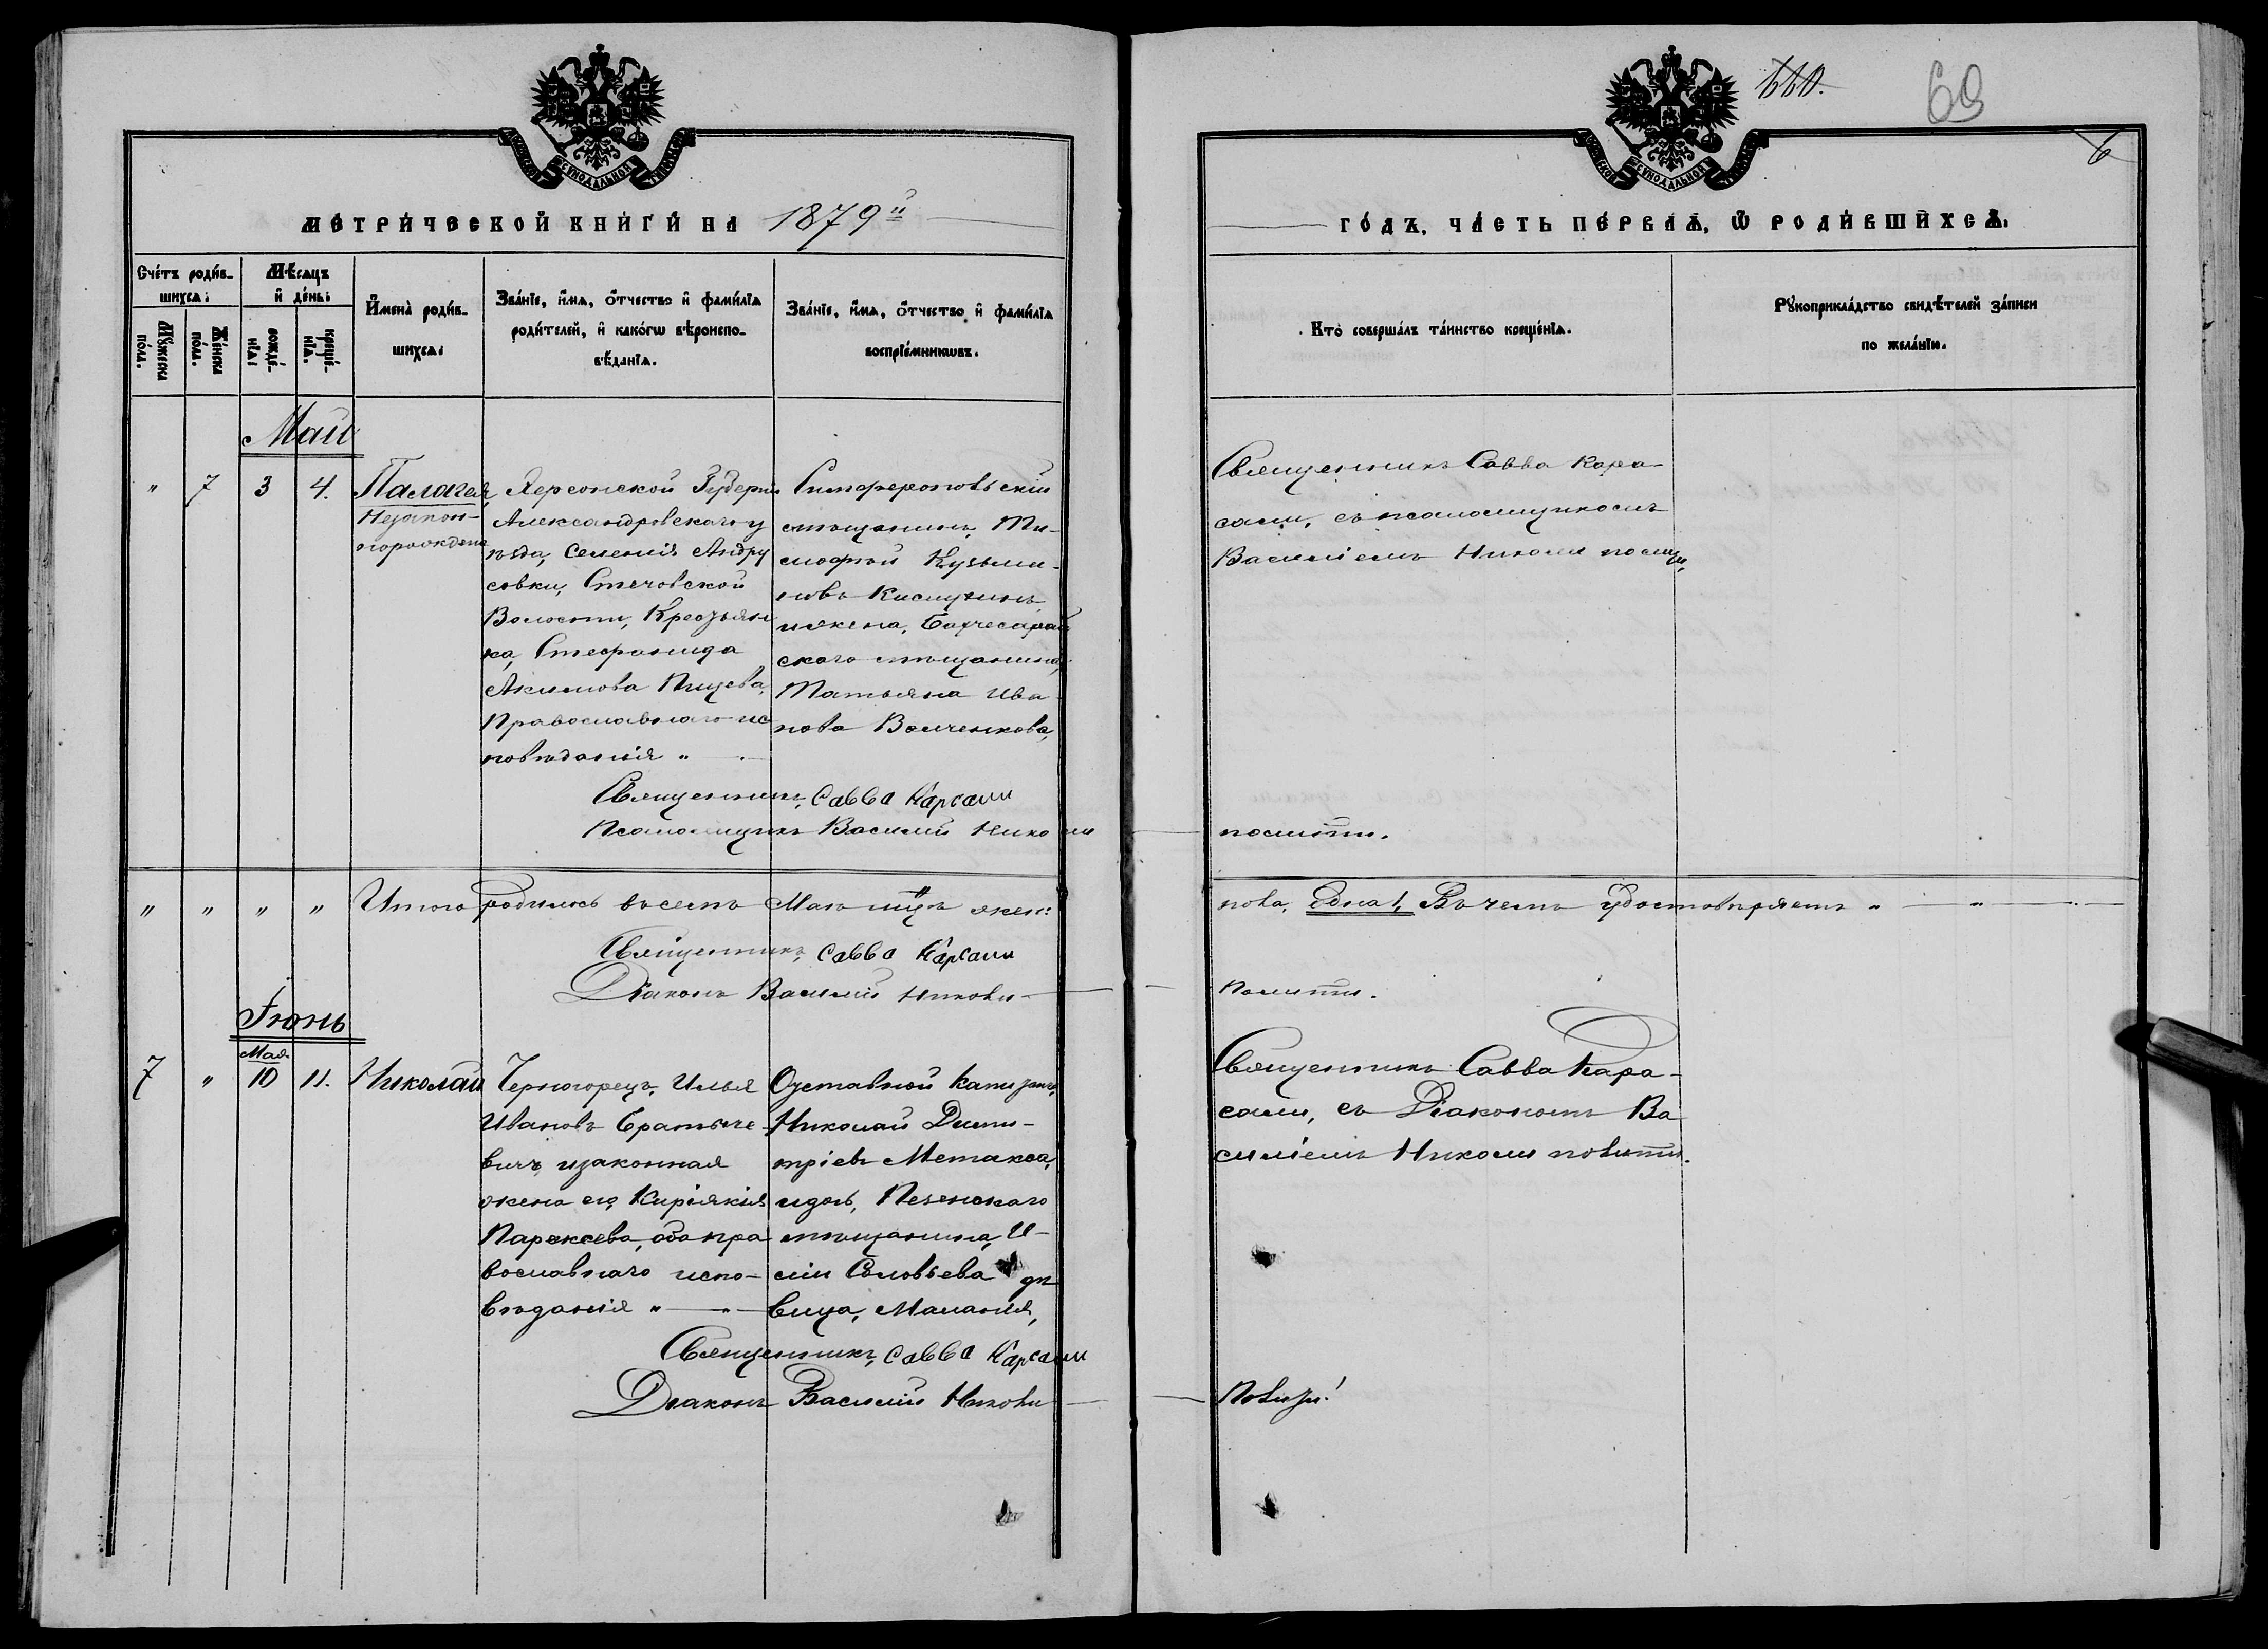 110.
69
6
МЕТРИЧЕСКОЙ КНИГИ НА 1879й
ГОДЪ, ЧАСТЬ ПЕРВАЯ, Ѡ РОДИВШИХСЯ.
Счетъ родив-
шихся:
Мѣсяцъ
и день:
Мужеска
пола.
Женска
пола.
рожде-
нія:
креще-
нія.
Имена родив-
шихся:
Званіе, имя, отчество и фамилія
родителей, и какогѡ вѣроиспо-
вѣданія.
Званіе, имя, отчество и фамилія
воспріемникѡвъ.
Кто совершалъ таинство крещенія.
Рукоприкладство свидѣтелей записи
по желанію.
Май
" 7 3 4.
Палагея,
Незакон-
норожденa
Херсонской Губерніи
Александровскаго у
ѣзда, Селенія Андру
совки, Стечовской
Волости, Крестьян
ка, Стефанида
Акимова Пицева,
Православнаго ис
повѣданія "
Симферопольскій
мѣщанинъ, Ти-
мофѣй Кузьми-
новъ
и жена, Бахчесарай
скаго мѣщанина,
Татьяна Ива
нова Волченкова,
Священникъ Савва Кара-
сали, съ псаломщикомъ
Василіемъ Николи
Священникъ, Савва Карсали
Псаломщикъ Василій Нико
" " " " Итого родилось въ семъ Маѣ мцѣ жен:
пола, Една 1, Въ чемъ удостовѣряемъ " — " —
Священникъ, Савва Карсали
Діаконъ Василій Николи —
Іюнь
7 " Мая 10 11. Николай
Черногорецъ, Илья
Ивановъ Братыче-
вичъ изаконная
жена его Киріякія
Парексева, оба пра
вославнаго испо-
вѣданія " — " —
Отставной Капитанъ,
Николай Дими-
тріевъ Метакса,
и дочь, Пезенскаго
мѣщанина, И-
ліи Соловьева дѣ
вица, Маланія,
Священникъ Савва Кара-
сали, съ Діакономъ Ва
силіемъ Николи
Священникъ, Савва Карсали
Діаконъ Василій Николи